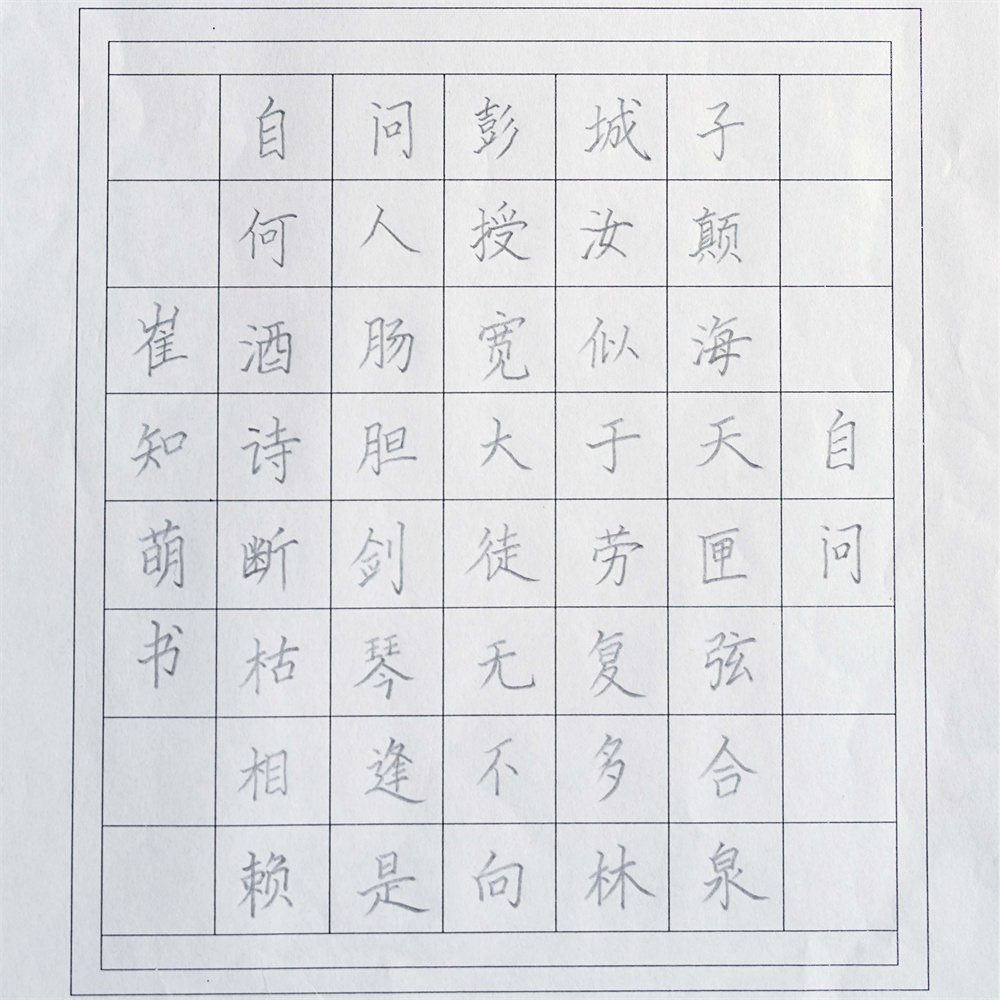 自问
自问彭城子
何人授汝颠
酒肠宽似海
诗胆大于天
断剑徒劳匣
枯琴无复弦
相逢不多合
赖是向林泉
崔知萌书